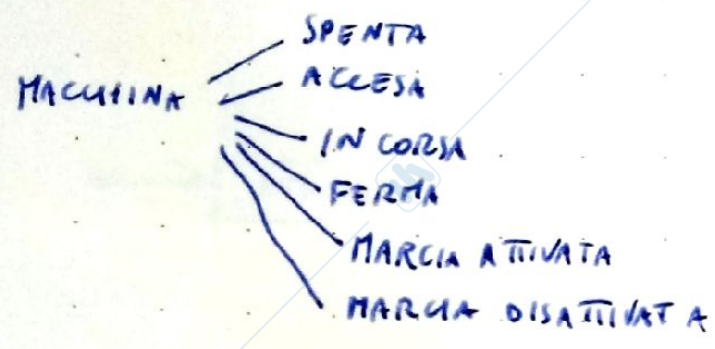 MACCHINA
SPENTA
ACCESA
IN CORSA
FERMA
MARCIA ATTIVATA
MARCIA DISATTIVATA